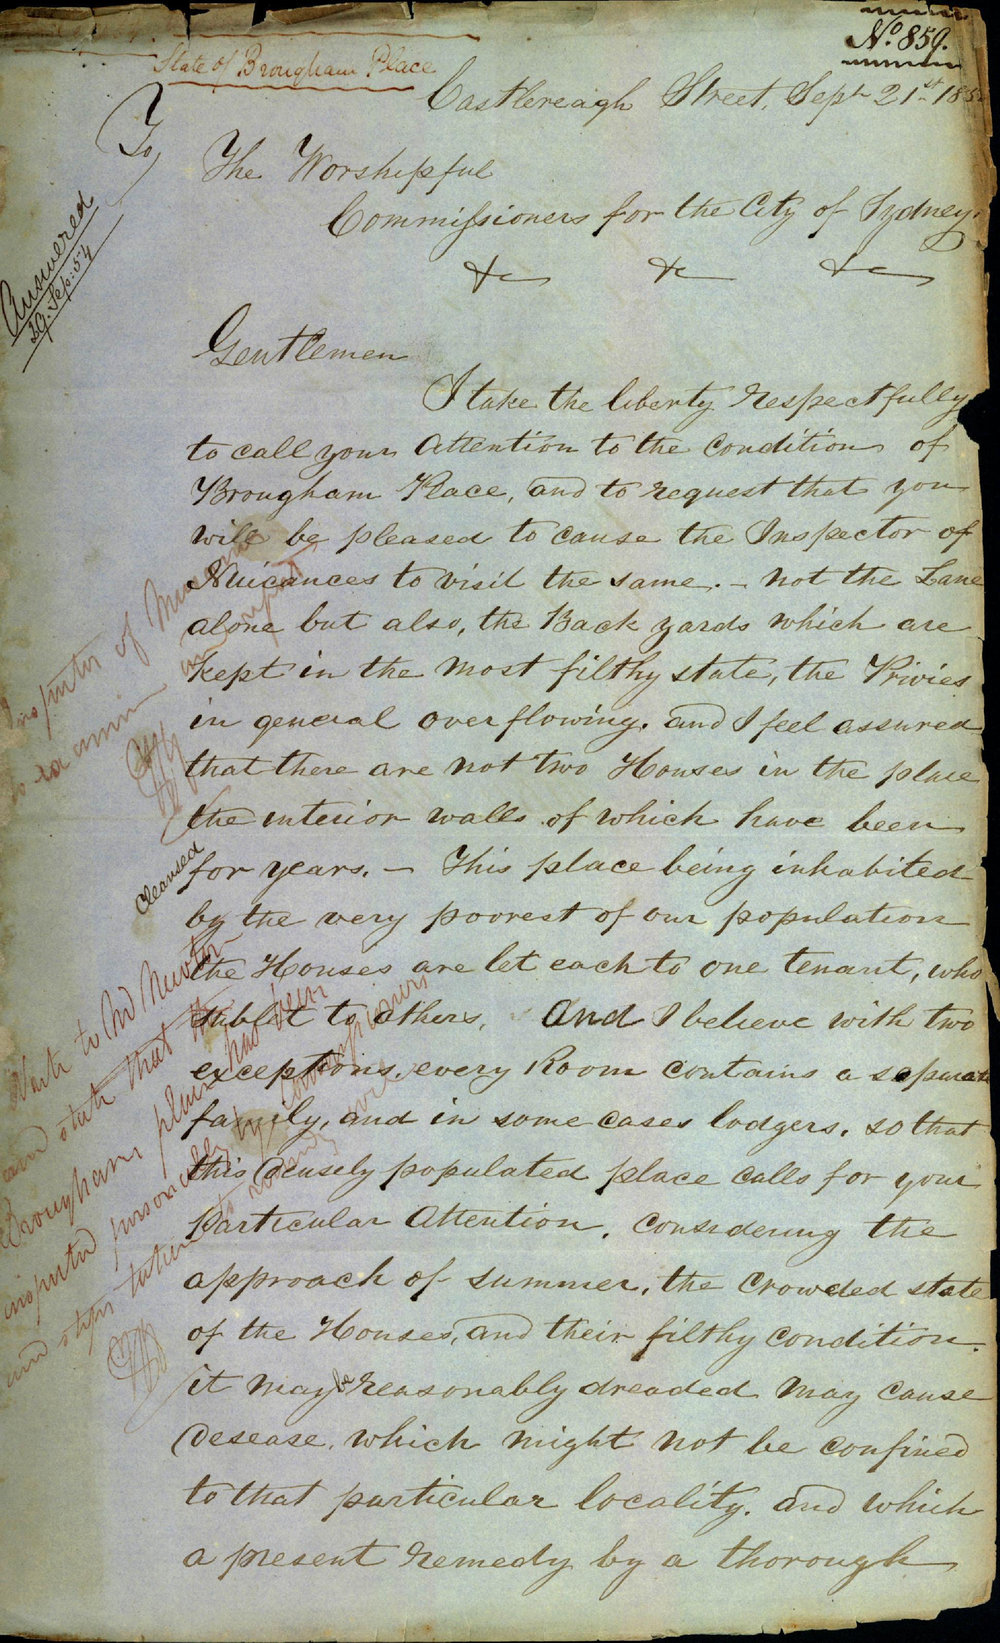 No. 859.
State of Brougham Place
Castlereagh Street, Sept 21st 185
To,
The Worshipful
Commissioners for the City of Sydney,
&c &c &c
Answered
29. Sep: 54
Gentlemen
I take the liberty respectfully
to call your Attention to the Condition of
Brougham Place, and to request that you
will be pleased to cause the Inspector of
Nuicances to visit the same. – not the Lane
alone but also, the Back yards which are
kept in the most filthy state, the Privies
in general over flowing. and I feel assured
that there are not two Houses in the place
the interior walls of which have been
cleansed
for years. – This place being inhabited
by the very poorest of our population
the Houses are let each to one tenant, who
sublet to others, And I believe with two
exceptions. every Room contains a separate
family, and in some cases lodgers. so that
this densely populated place calls for your
Particular Attention. considering the
approach of summer. the crowded state
of the Houses, and their filthy condition.
it may be reasonably dreaded may cause
Desease. which might not be confined
to that particular locality. and which
a present remedy by a thorough
Inspector of Nuisances
to examine and report
Write to Mr Newton
and state that the
Brougham place had been
inspected personally by Commissioners
and steps taken